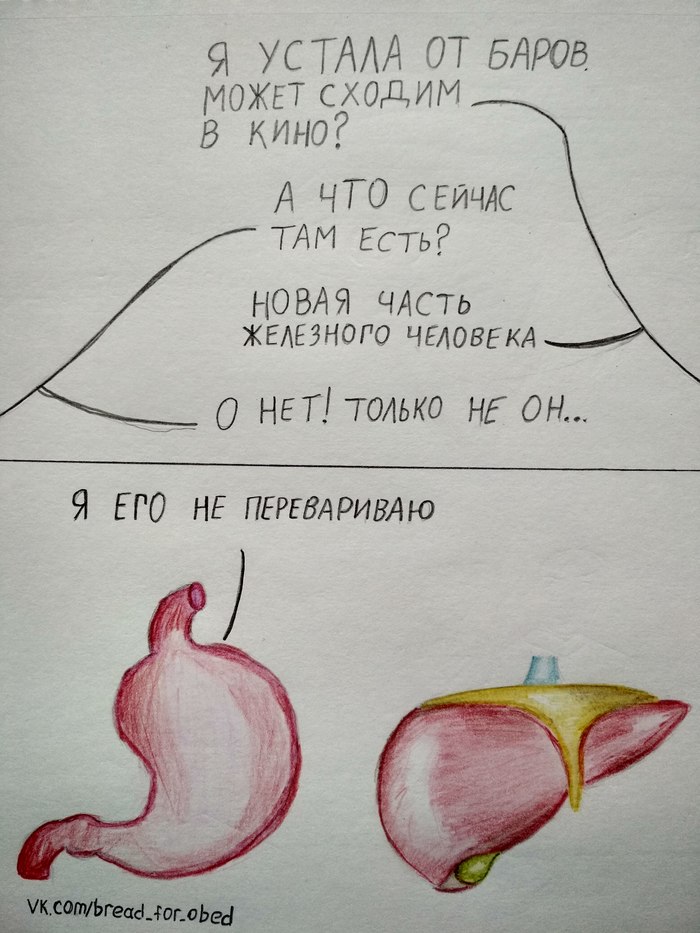 Я УСТАЛА ОТ БАРОВ.
МОЖЕТ СХОДИМ
В КИНО?
А ЧТО СЕЙЧАС
ТАМ ЕСТЬ?
НОВАЯ ЧАСТЬ
ЖЕЛЕЗНОГО ЧЕЛОВЕКА
О НЕТ! ТОЛЬКО НЕ ОН...
Я ЕГО НЕ ПЕРЕВАРИВАЮ
VK.com/bread_for_obed